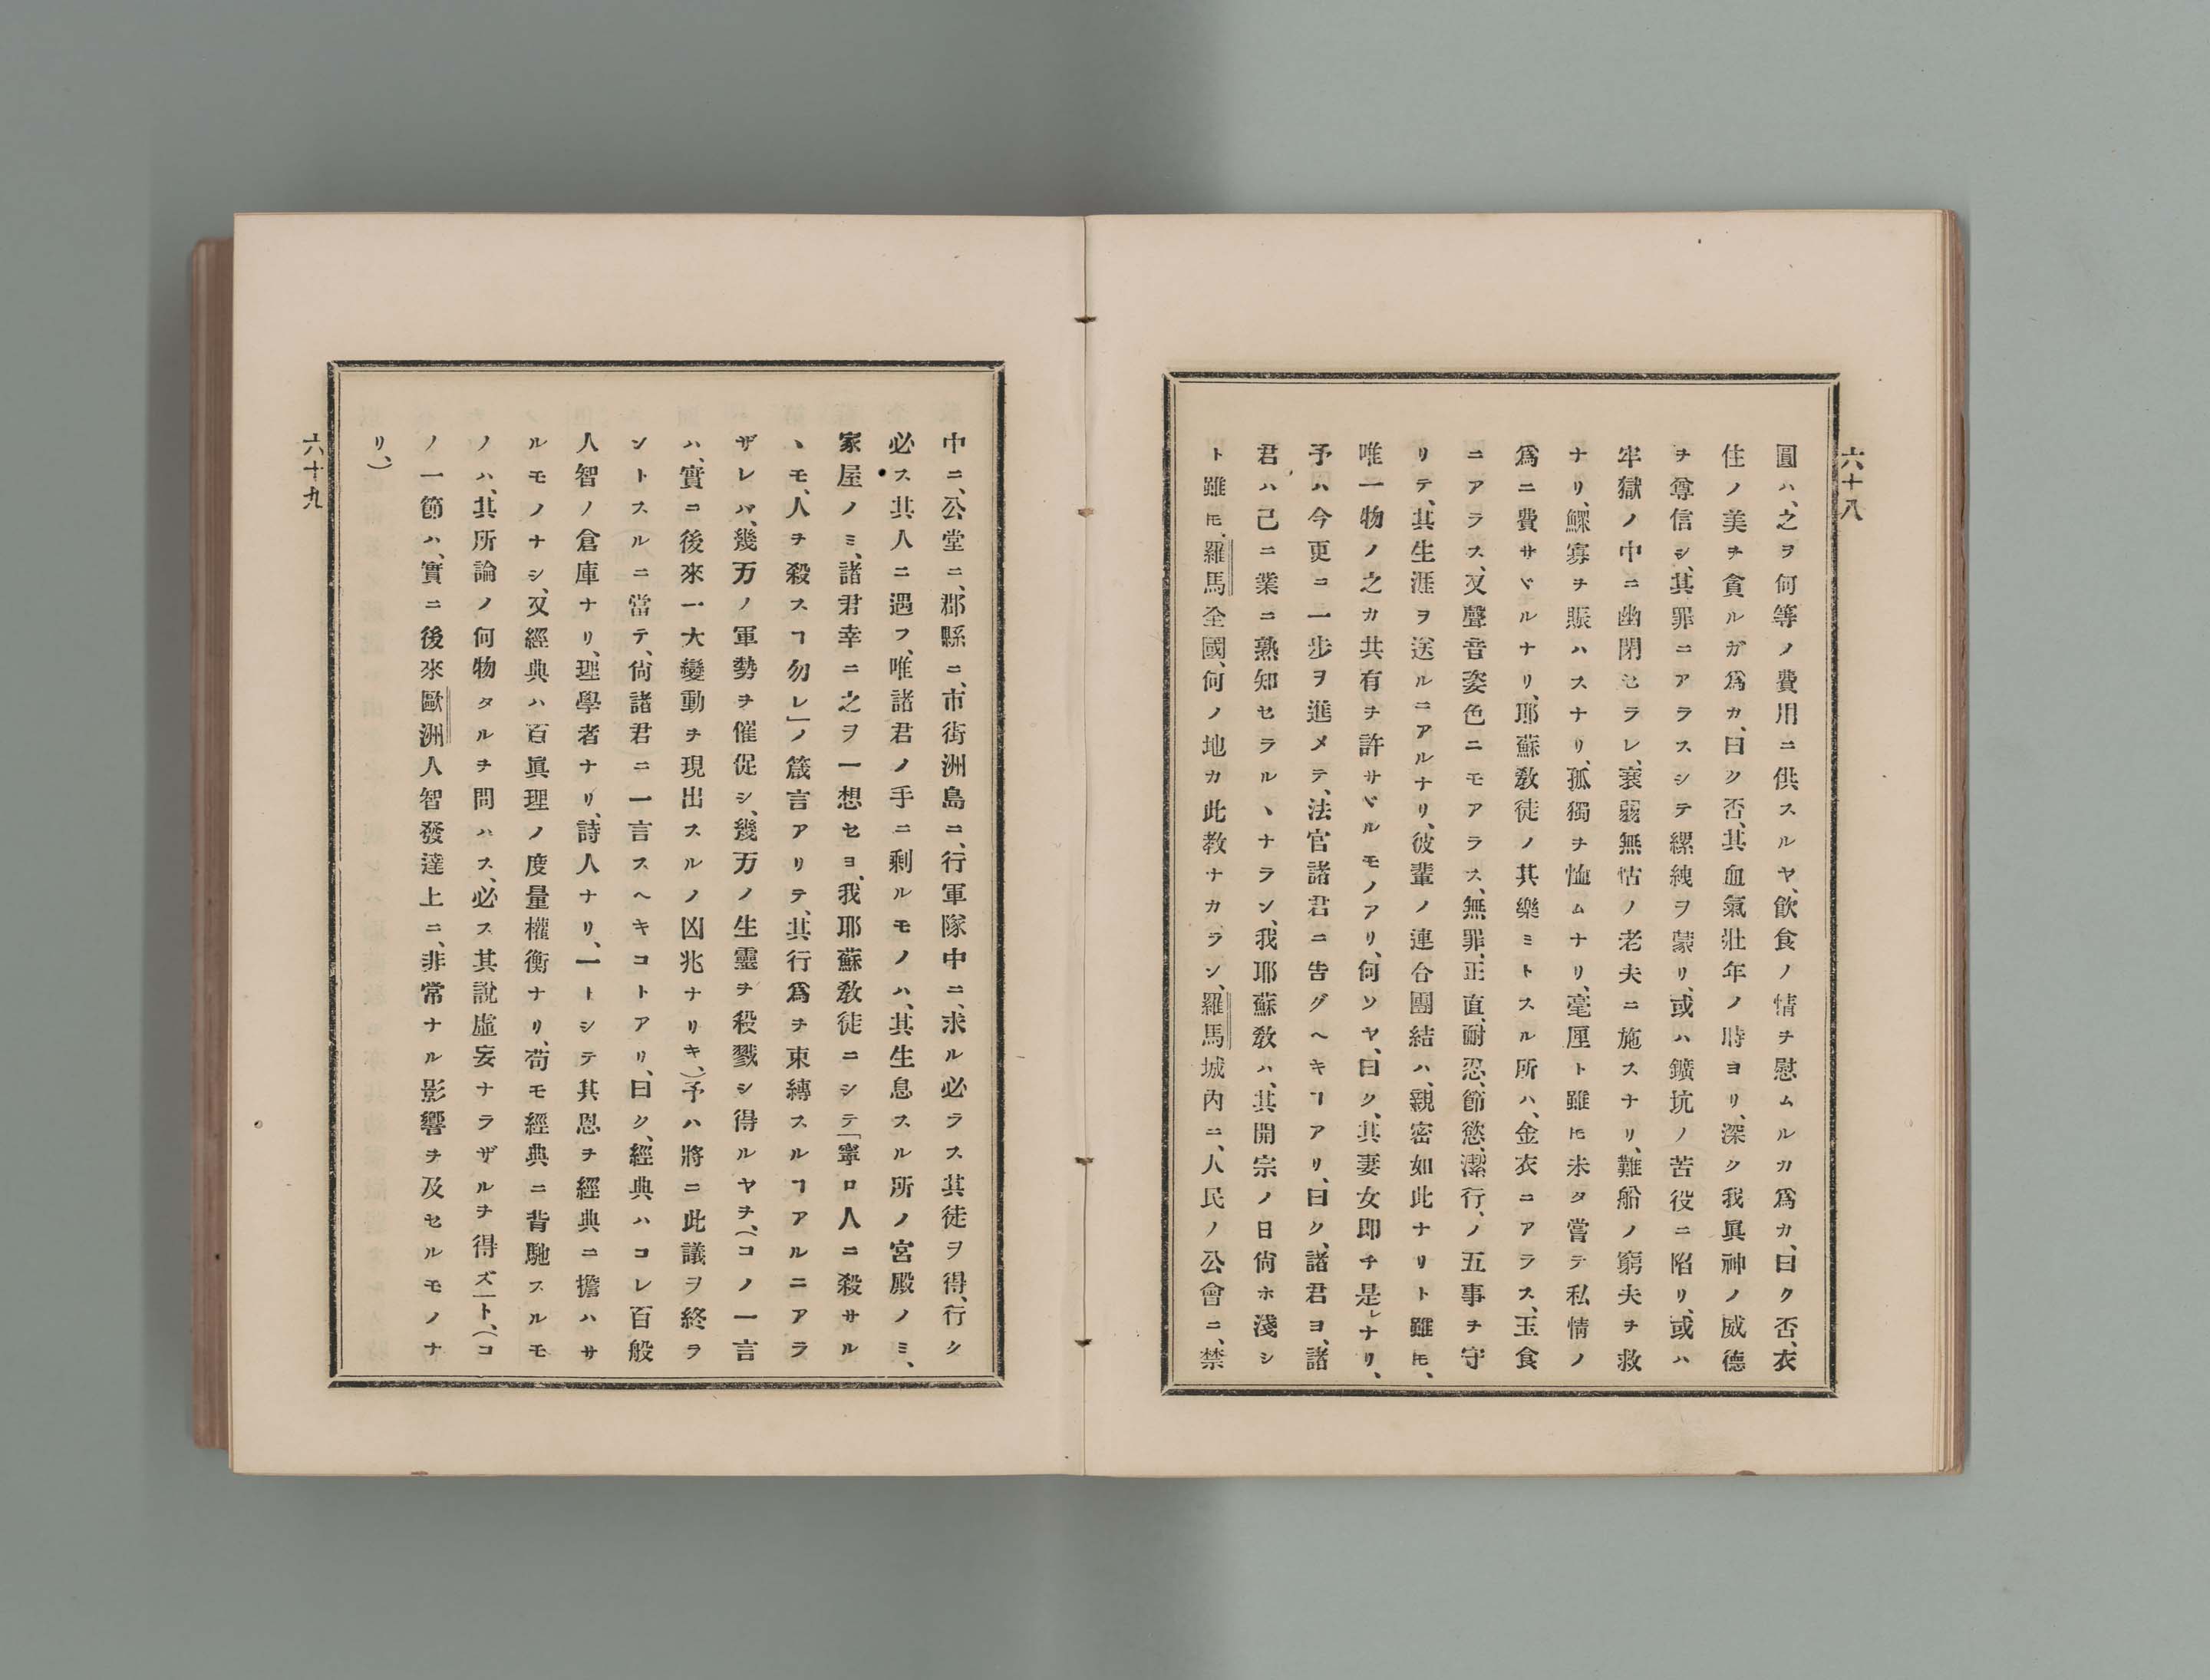 六十八
圓ハ、之ヲ何等ノ費用ニ供スルヤ、飮食ノ情チ慰ムルカ爲カ、曰ク否、衣
住ノ美チ貪ルガ爲カ、曰ク否、其血氣壯年ノ時ヨリ、深ク我眞神ノ威德
チ尊信シ、其罪ニアラスシテ縲絏ヲ蒙リ、或ハ鑛坑ノ苦役ニ陷リ、或ハ
牢獄ノ中ニ幽閉セラレ、衰弱無怙ノ老夫ニ施スナリ、難船ノ窮夫チ救
ナリ、鰥寡チ賑ハスナリ、孤獨チ恤ムナリ、毫厘ト雖𪜈未タ嘗テ私情ノ
爲ニ費サヾルナリ、耶蘇敎徒ノ其樂ミトスル所ハ、金衣ニアラス、玉食
ニアラス、又聲音姿色ニモアラス、無罪、正直、耐忍、節慾、潔行、ノ五事チ守
リテ、其生涯ヲ送ルニアルナリ、彼輩ノ連合團結ハ、親密如此ナリト雖𪜈、
唯一物ノ之カ共有チ許サヾルモノアリ、何ソヤ、曰ク、其妻女即チ是レナリ、
予ハ今更ニ一步ヲ進メテ、法官諸君ニ告グヘキヿアリ、曰ク、諸君ヨ、諸
君ハ己ニ業ニ熟知セラルヽナラン、我耶蘇敎ハ、其開宗ノ日尙ホ淺シ
ト雖𪜈、羅馬全國、何ノ地カ此敎ナカラン、羅馬城內ニ、人民ノ公會ニ、禁
中ニ、公堂ニ、郡縣ニ、市街洲島ニ、行軍隊中ニ、求ル必ラス其徒ヲ得、行ク
必ス其人ニ遇フ、唯諸君ノ手ニ剩ルモノハ、其生息スル所ノ宮殿ノミ、
家屋ノミ、諸君幸ニ之ヲ一想セヨ、我耶蘇敎徒ニシテ「寧ロ人ニ殺サル
ヽモ、人チ殺スヿ勿レ」ノ箴言アリテ、其行爲チ束縛スルヿアルニアラ
ザレハ、幾万ノ軍勢ヲ催促シ、幾万ノ生靈チ殺戮シ得ルヤチ、(コノ一言
ハ、實ニ後來一大變動チ現出スルノ凶兆ナリキ、)予ハ將ニ此議ヲ終ラ
ントスルニ當テ、尙諸君ニ一言スヘキコトアリ、曰ク、經典ハコレ百般
人智ノ倉庫ナリ、理學者ナリ、詩人ナリ、一トシテ其恩チ經典ニ擔ハサ
ルモノナシ、又經典ハ百眞理ノ度量權衡ナリ、苟モ經典ニ背馳スルモ
ノハ、其所論ノ何物タルチ問ハス、必ス其說虛妄ナラザルチ得ズ」ト、(コ
ノ一節ハ、實ニ後來歐洲人智發達上ニ、非常ナル影響チ及セルモノナ
リ、)
六十九